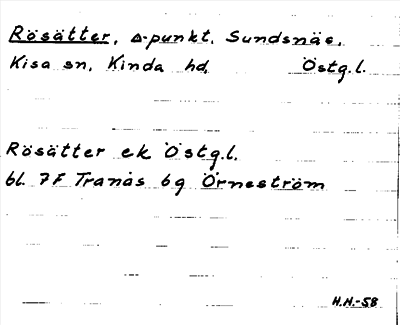 Rösätter, ∆-punkt, Sundsnäs,
Kisa sn, Kinda hd, Östg.l.
Rösätter ek Östg.l.
bl. 7F Tranås 6g Örneström
H.H.-58